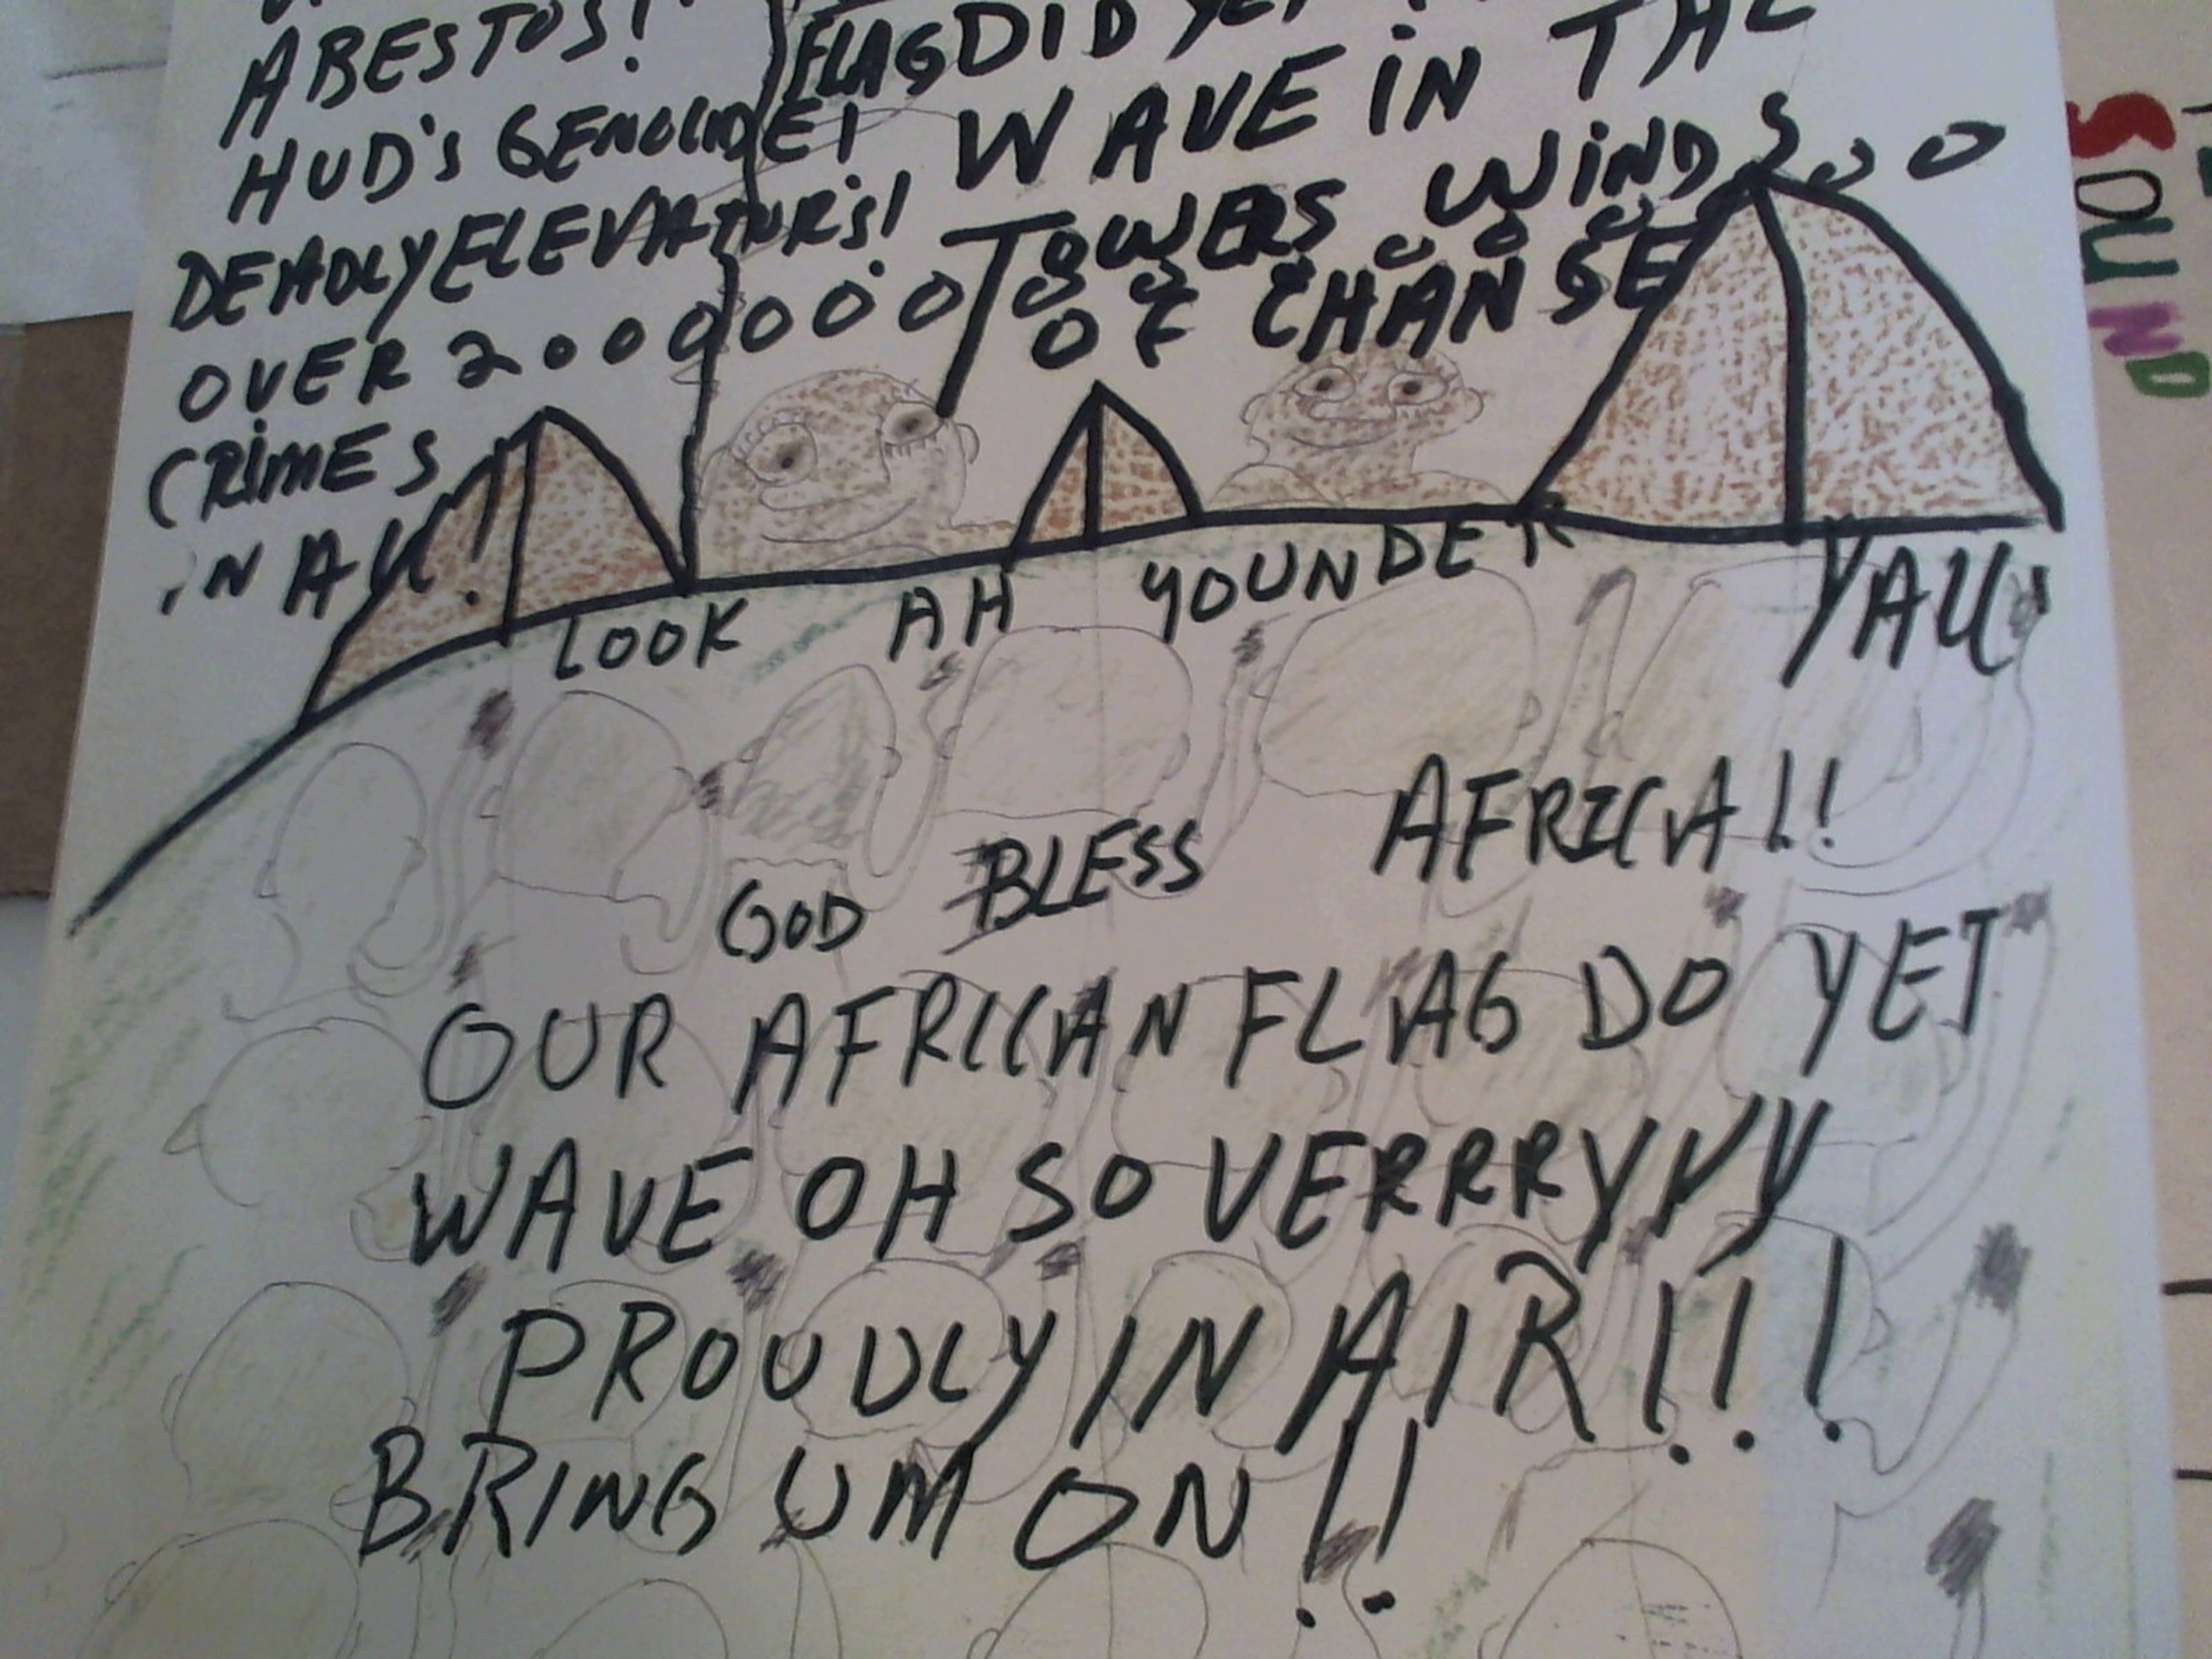 ABESTOS!
HUD'S GENOCIDE!
DEADLY ELEVATUR'S!
OVER 200000000
CRIMES
IN ALL!
FLAG DID YET
WAVE IN THE
TOWERS WINDS
OF CHANGE
LOOK AH YOUNDER YALL!
GOD BLESS AFRICA!!
OUR AFRICAN FLAG DO YET
WAVE OH SO VERRRYYY
PROUDLY IN AIR!!!
BRING UM ON!!
SOUND